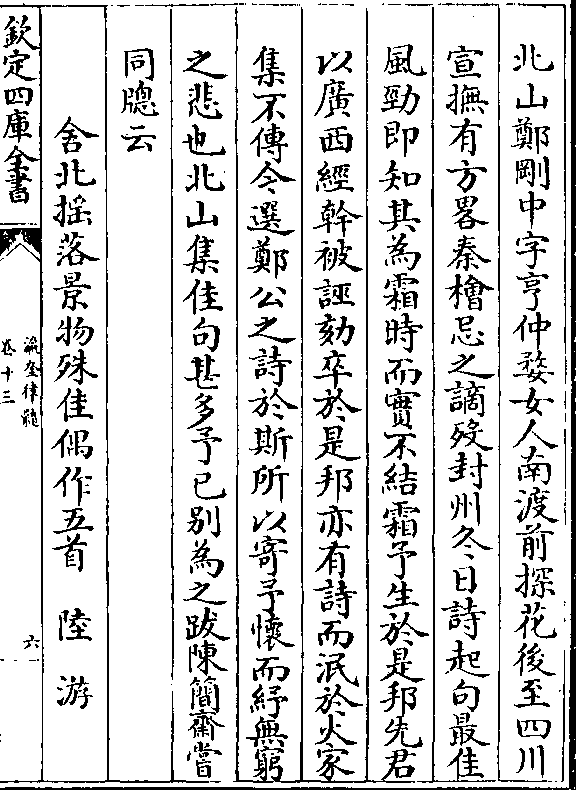 北山鄭剛中字亨仲婺女人南渡前探花後至四川
宣撫有方畧秦檜忌之謫殁封州冬日詩起句最佳
風勁即知其為霜時而實不結霜予生於是邦先君
以廣西經幹被誣劾卒於是邦亦有詩而泯於火家
集不傳今選鄭公之詩於斯所以寄予懷而紓無窮
之悲也北山集佳句甚多予已别為之跋陳簡齋嘗
同牕云
舍北揺落景物殊佳偶作五首　陸游
欽定四庫全書
瀛奎律髓
卷十三
六